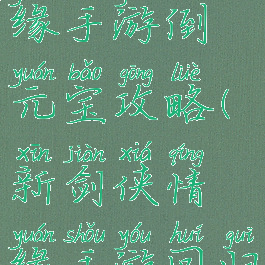 缘手游倒
yuán bǎo gōng lüè
元宝攻略(
xīn jiàn xiá qíng
新剑侠情
yuán shǒu yóu huí guī
缘手游回归